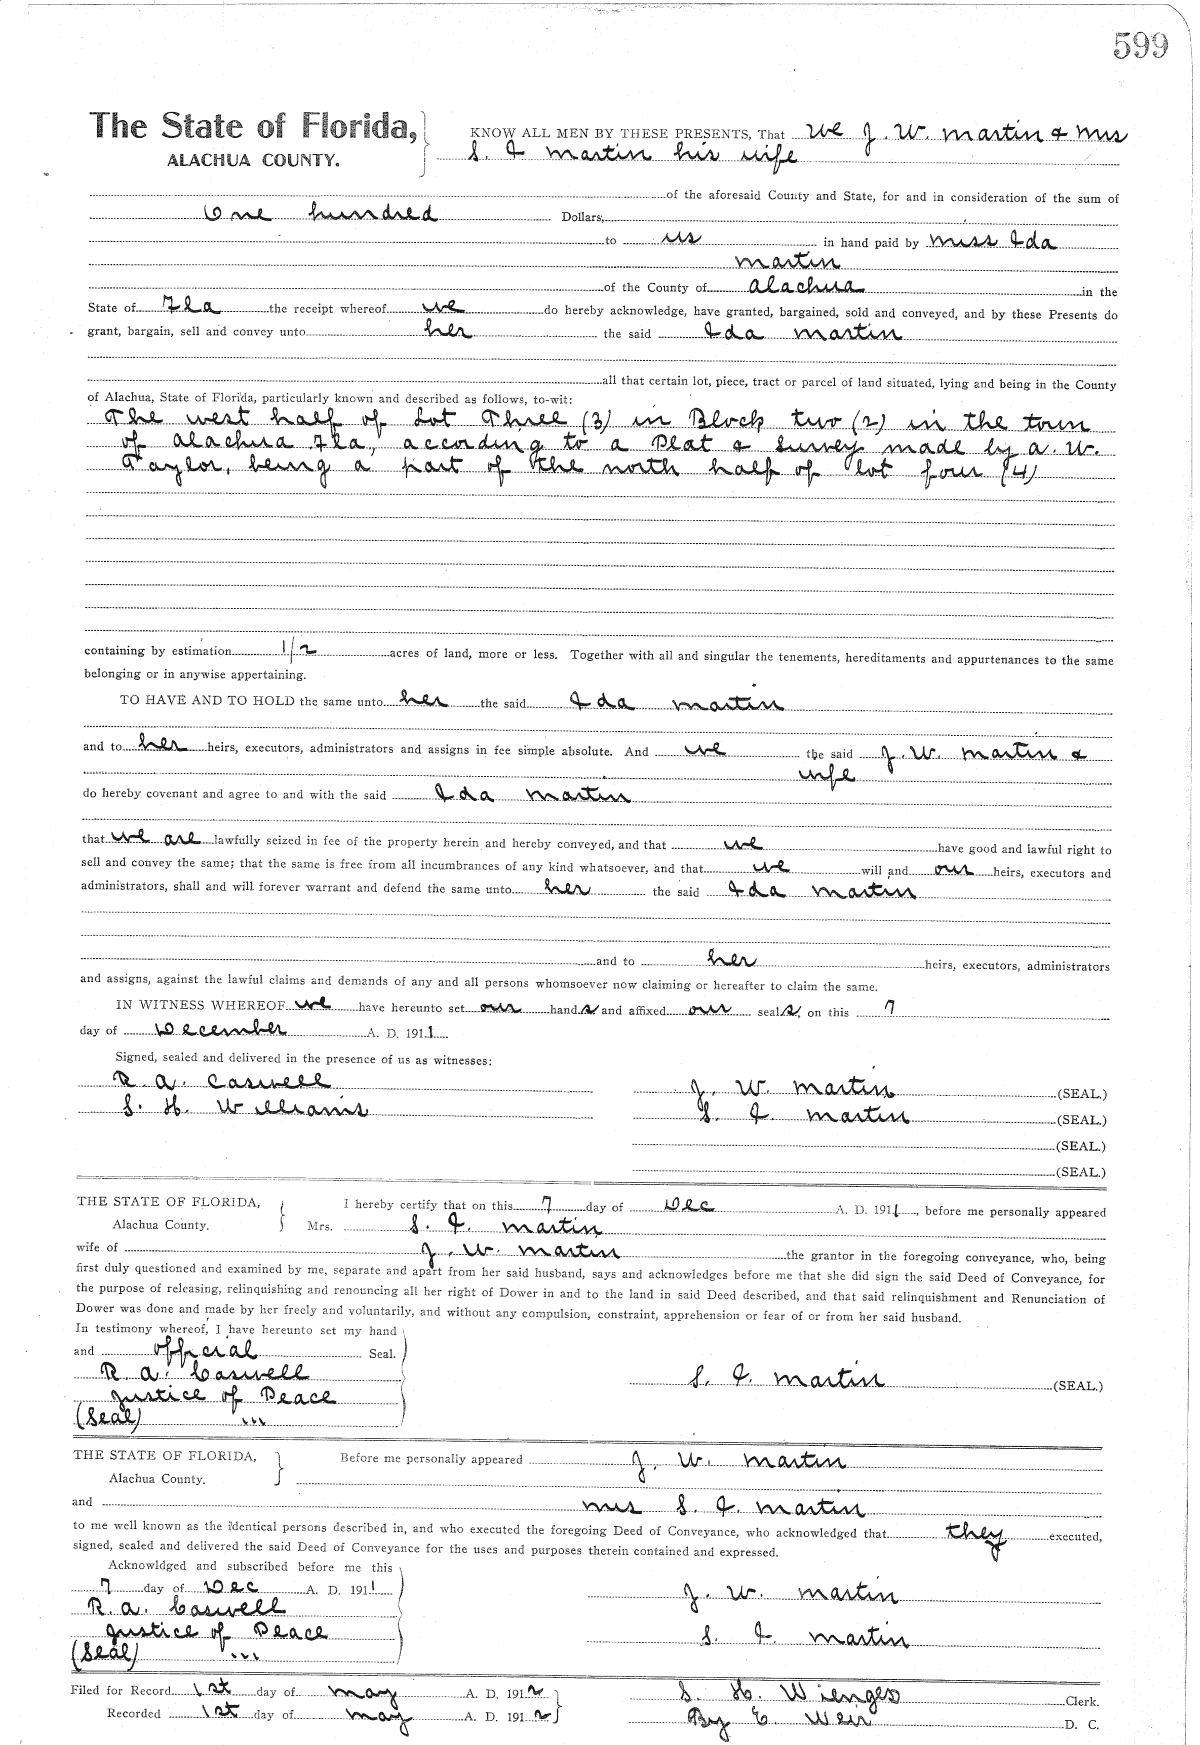 599
The State of Florida, KNOW ALL MEN BY THESE PRESENTS, That We J. W. Martin & Mrs
ALACHUA COUNTY. S. I. Martin his wife
of the aforesaid County and State, for and in consideration of the sum of
One hundred Dollars,
to us in hand paid by Miss Ida
Martin
of the County of Alachua in the
State of Fla the receipt whereof we do hereby acknowledge, have granted, bargained, sold and conveyed, and by these Presents do
grant, bargain, sell and convey unto her the said Ida Martin
all that certain lot, piece, tract or parcel of land situated, lying and being in the County
of Alachua, State of Florida, particularly known and described as follows, to-wit:
The west half of Lot Three (3) in Block two (2) in the town
of Alachua Fla, according to a Plat & Survey made by A. W.
Taylor, being a part of the north half of lot four (4)
containing by estimation 1/2 acres of land, more or less. Together with all and singular the tenements, hereditaments and appurtenances to the same
belonging or in anywise appertaining.
TO HAVE AND TO HOLD the same unto her the said Ida Martin
and to her heirs, executors, administrators and assigns in fee simple absolute. And we the said J. W. Martin &
wife
do hereby covenant and agree to and with the said Ida Martin
that we are lawfully seized in fee of the property herein and hereby conveyed, and that we have good and lawful right to
sell and convey the same; that the same is free from all incumbrances of any kind whatsoever, and that we will and our heirs, executors and
administrators, shall and will forever warrant and defend the same unto her the said Ida Martin
and to her heirs, executors, administrators
and assigns, against the lawful claims and demands of any and all persons whomsoever now claiming or hereafter to claim the same.
IN WITNESS WHEREOF we have hereunto set our hands and affixed our seals, on this 7
day of December A. D. 1911
Signed, sealed and delivered in the presence of us as witnesses:
R. A. Caswell J. W. Martin (SEAL.)
S. H. Williams S. I. Martin (SEAL.)
(SEAL.)
(SEAL.)
THE STATE OF FLORIDA, I hereby certify that on this 7 day of Dec A. D. 1911, before me personally appeared
Alachua County. Mrs. S. I. Martin
wife of J. W. Martin the grantor in the foregoing conveyance, who, being
first duly questioned and examined by me, separate and apart from her said husband, says and acknowledges before me that she did sign the said Deed of Conveyance, for
the purpose of releasing, relinquishing and renouncing all her right of Dower in and to the land in said Deed described, and that said relinquishment and Renunciation of
Dower was done and made by her freely and voluntarily, and without any compulsion, constraint, apprehension or fear of or from her said husband.
In testimony whereof, I have hereunto set my hand
and official Seal.
R. A. Caswell S. I. Martin (SEAL.)
Justice of Peace
(Seal) ...
THE STATE OF FLORIDA, Before me personally appeared J. W. Martin
Alachua County.
and Mrs S. I. Martin
to me well known as the identical persons described in, and who executed the foregoing Deed of Conveyance, who acknowledged that they executed,
signed, sealed and delivered the said Deed of Conveyance for the uses and purposes therein contained and expressed.
Acknowldged and subscribed before me this
7 day of Dec A. D. 1911 J. W. Martin
R. A. Caswell
Justice of Peace S. I. Martin
(Seal) ...
Filed for Record 1st day of May A. D. 1912 S. H. Wienges Clerk.
Recorded 1st day of May A. D. 1912 By E. Weir D. C.